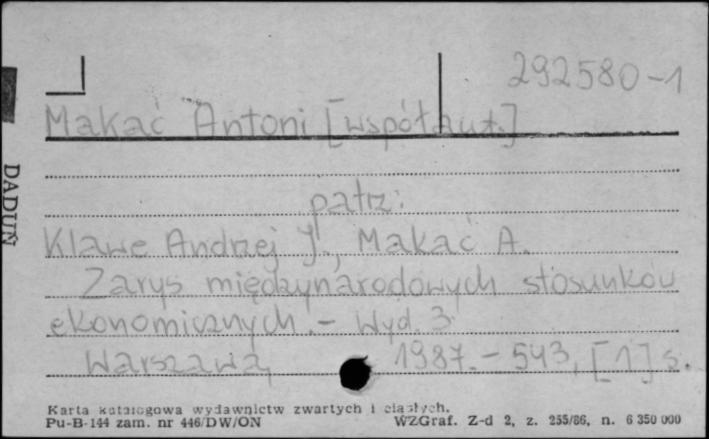 292580-1
Makać Antoni [współaut.]
patrz:
Klawe Andrzej J., Makać A.
Zarys międzynarodowych stosunków
ekonomicznych. - Wyd. 3
Warszawa, 1987. - 543, [1] s.
DADUŃ
Karta katalogowa wydawnictw zwartych i ciągłych.
Pu-B-144 zam. nr 446/DW/ON WZGraf. Z-d 2, z. 255/86, n. 6 350 000